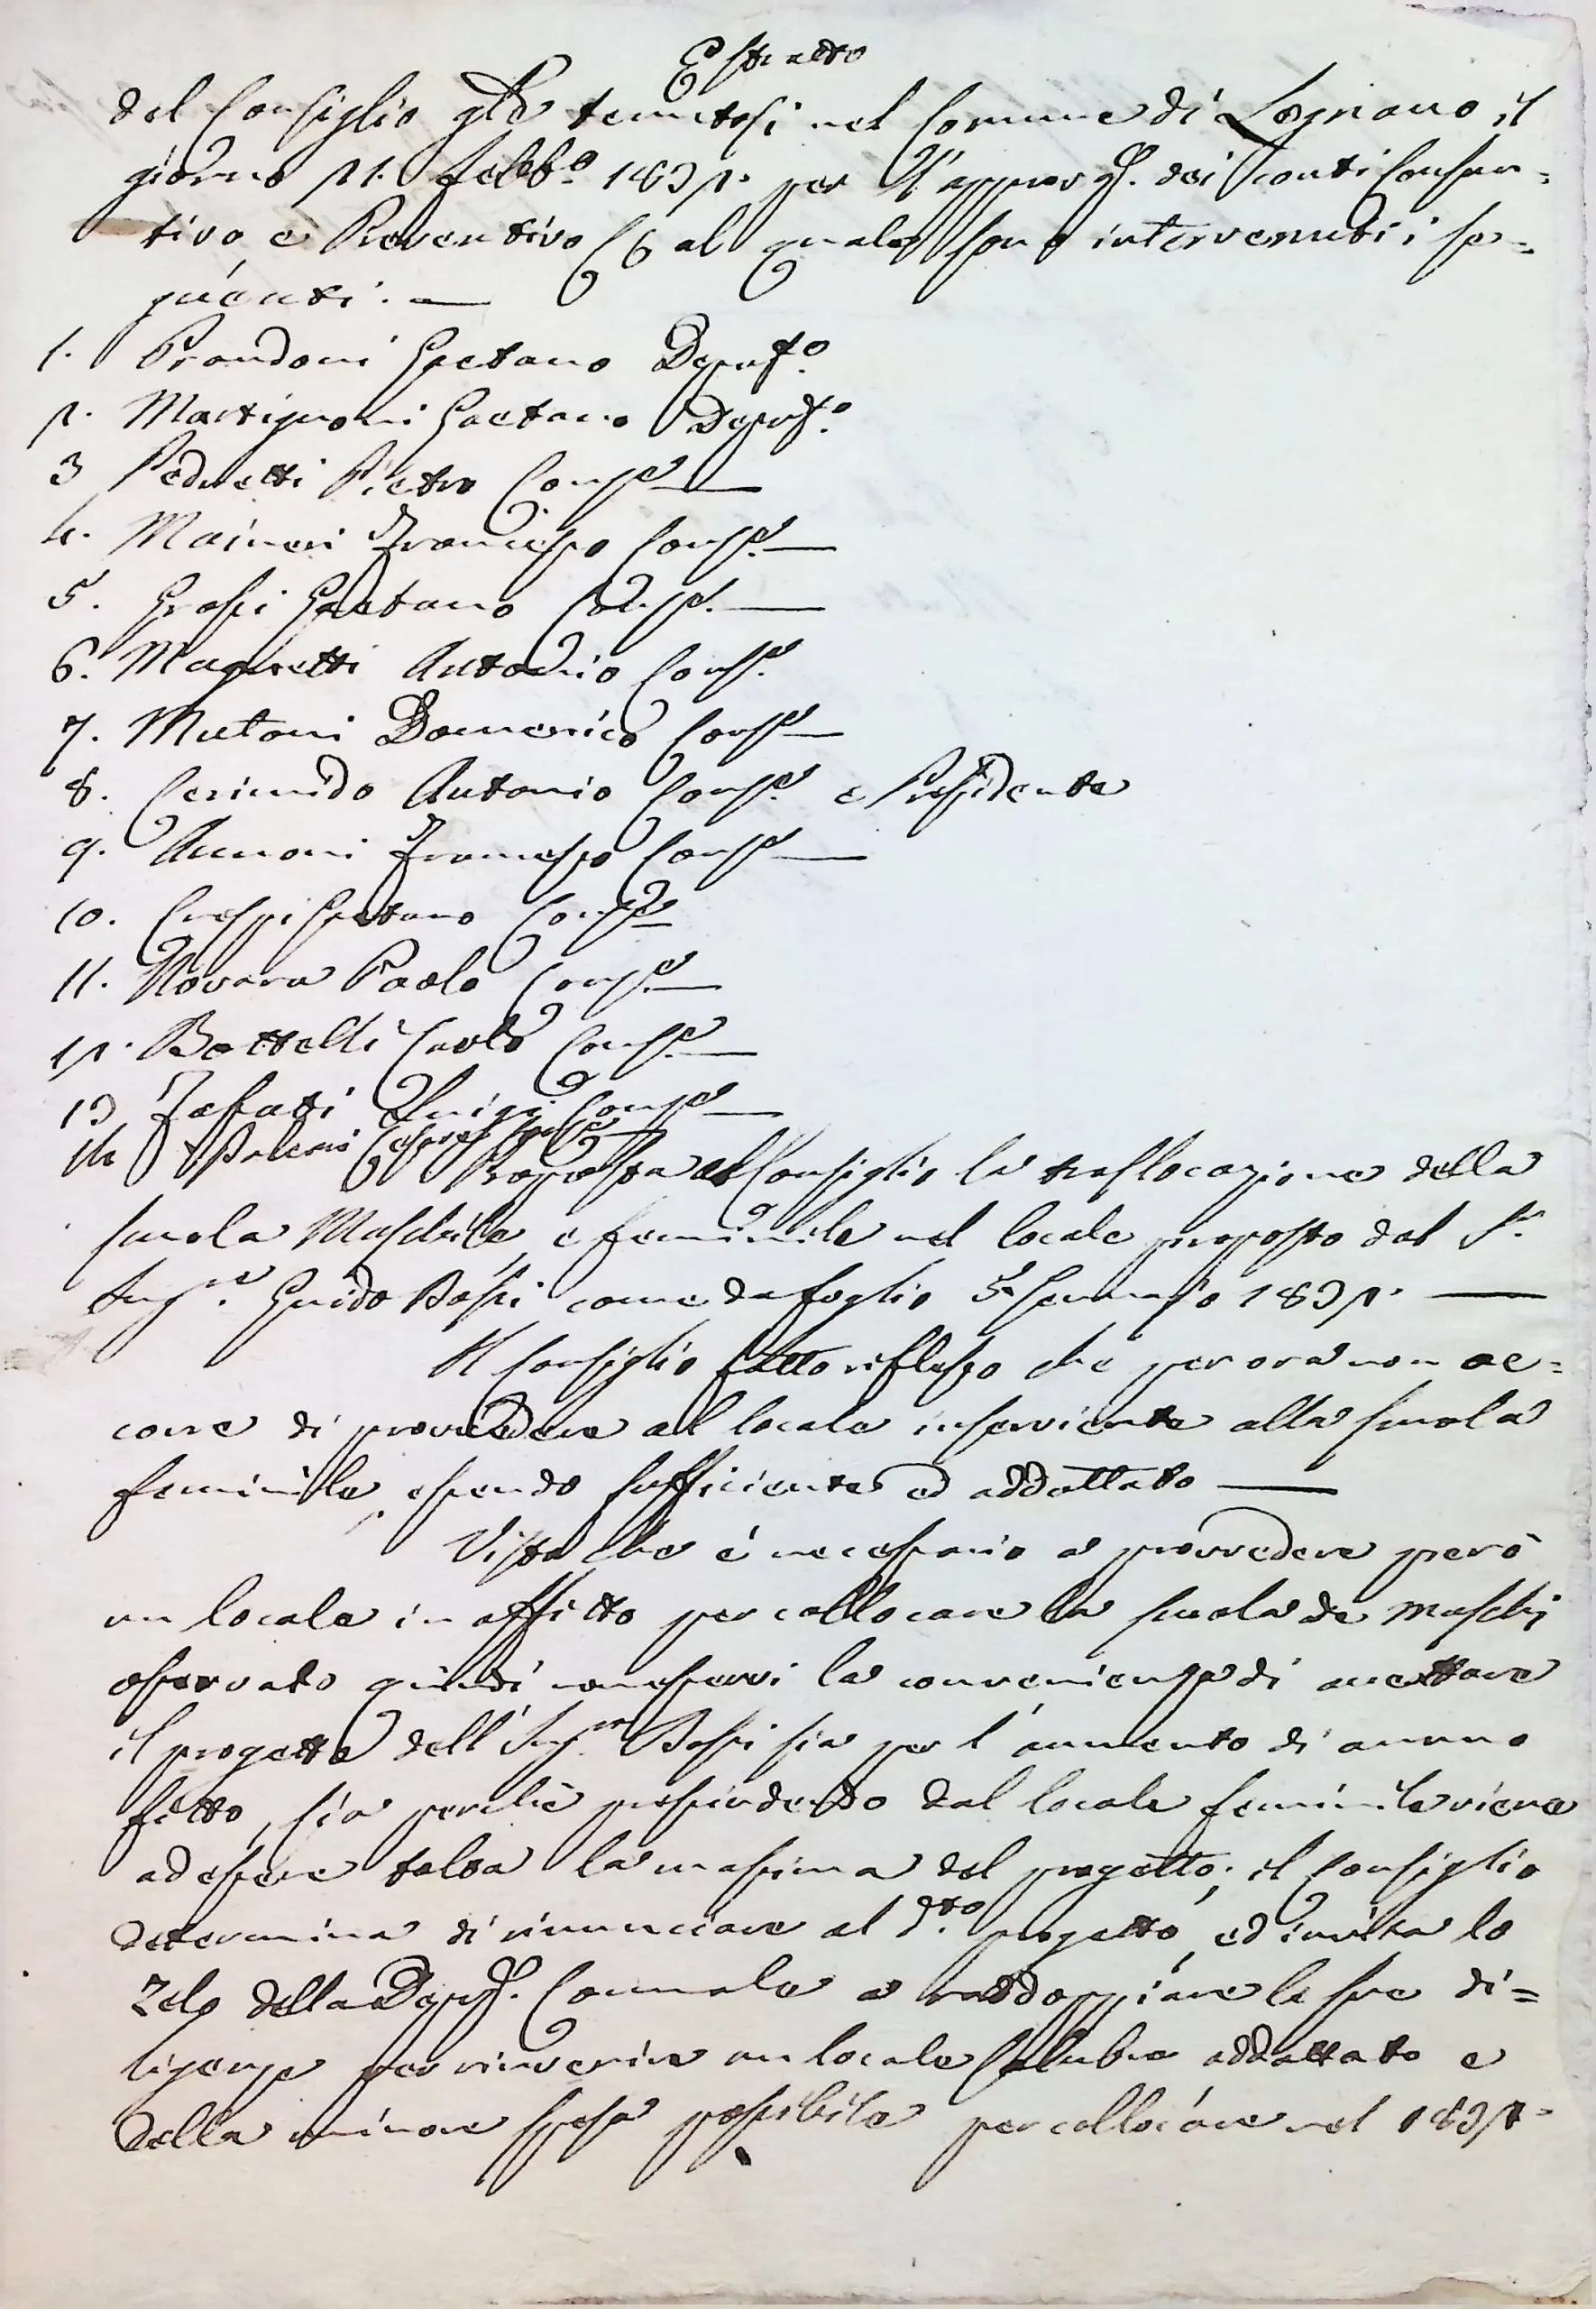 Estratto
del Consiglio gle tenutosi nel Comune di Legnano il
giorno 21. febb.o 1832. per l'approv.e dei conti Consun=
tivo, e Preventivo al quale sono intervenuti i se=
guenti. —
1. Prandoni Gaetano Deput.o
2. Martignoni Gaetano Deput.o
3 Pedretti Pietro Cons.e —
4. Maineri Francesco Cons.e —
5. Grassi Gaetano Cons.e —
6. Magnetti Antonio Cons.e
7. Mutoni Domenico Cons.e —
8. Cerimido Antonio Cons.e e Presidente
9. Annoni Francesco Cons.e —
10. Crespi Gaetano Cons.e
11. Novara Paolo Cons.e —
12. Bottelli Carlo Cons.e —
13 Zafatti Luigi Cons.e —
14 Cons.e —
Proposta al Consiglio la traslocazione della
scuola Maschile, e feminile nel locale proposto dal S.r
Ing.re Guido Bossi come da foglio 5 Gennajo 1832. —
Il Consiglio fatto riflesso che per ora non oc=
corre di provvedere al locale inserviente alla scuola
feminile, essendo sufficiente ed addattato —
Visto che è necessario a provvedere però
un locale in affitto per collocare la scuola de maschi
osservato quindi non esservi la convenienza di accettare
il progetto dell'Ing.re Bossi sia per l'aumento di annuo
fitto, sia perchè prescindendo dal locale feminile viene
ad essere tolta la massima del progetto; il Consiglio
determina di rinunciare al d.to progetto, ed invita lo
Zelo della Deput.e Comunale a raddoppiare le sue di=
ligenze per rinvenire un locale salubre addattato e
della minore spesa possibile per collocare nel 1832